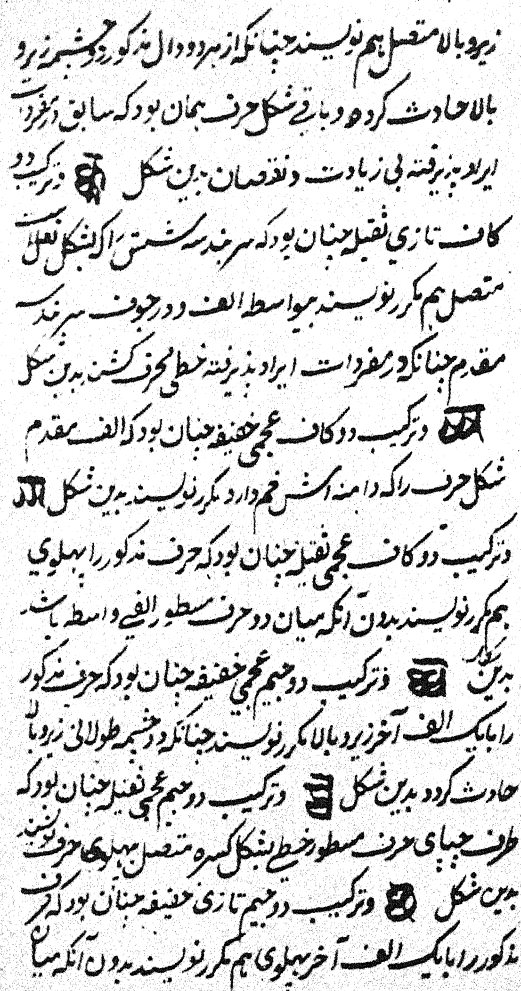 زیر و بالا متصل بهم نویسند چنانکه از هر دو دال مذکور دو چشمه زیر و
بالا حادث کردد و باقی شکل حرف همان بود که سابق در مفردات
ایراد پذیرفته بی زیادت و نقصان بدین شکل و ترکیب دو
کاف تازی ثقیله چنان بود که سر مندسه اش را که بشکل نعل است
متصل بهم مکرر نویسند بیواسطه الف و در جوف سر مندسه
مقدم چنانکه در مفردات ایراد پذیرفته خطی محرف کشند بدین شکل
و ترکیب دو کاف عجمی خفیفه چنان بود که الف مقدم
شکل حرف را که دامنه اش خم دارد مکرر نویسند بدین شکل
و ترکیب دو کاف عجمی ثقیله چنان بود که حرف مذکور را پهلوی
هم مکرر نویسند بدون آنکه میان دو حرف مسطور الفی واسطه باشد
بدین و ترکیب دو جیم عجمی خفیفه چنان بود که حرف مذکور
را با یک الف آخر زیر و بالا مکرر نویسند چنانکه دو چشمه طولانی زیر و بالا
حادث کردد بدین شکل و ترکیب دو جیم عجمی ثقیله چنان بود که
طرف چپای حرف مسطور خطی بشکل کسره متصل پهلوی حرف نویسند
بدین شکل و ترکیب دو جیم تازی خفیفه چنان بود که حرف
مذکور را با یک الف آخر پهلوی هم مکرر نویسند بدون آنکه میان